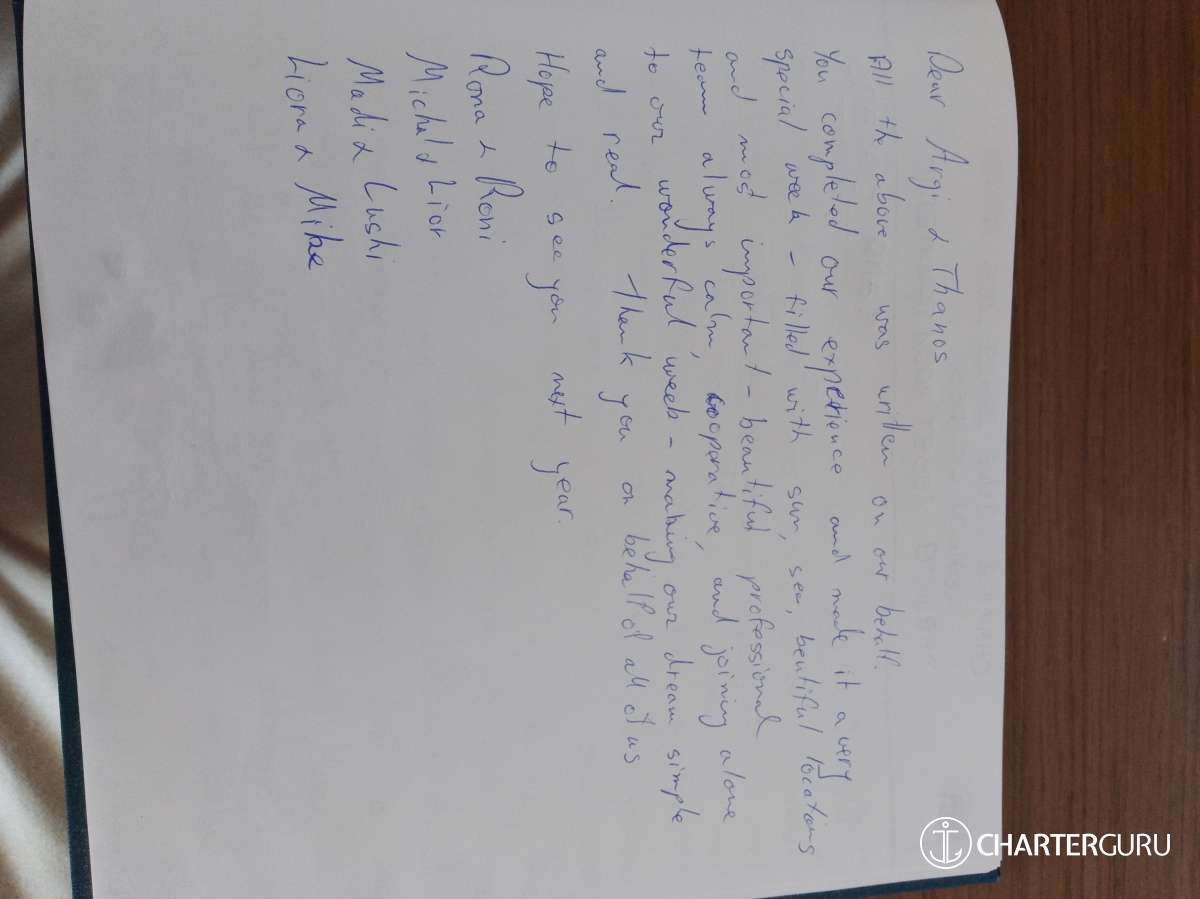 Dear Argi & Thanos
All the above was written on our behalf.
You completed our experience and made it a very
special week - filled with sun, sea, beutiful locations
and most important - beautiful professional
team always calm, cooperative, and joining alone
to our wonderful week - making our dream simple
and real. Thank you on behalf of all of us
Hope to see you next year.
Rona & Roni
Michal & Lior
Madi & Lushi
Liora & Mike
CHARTERGURU